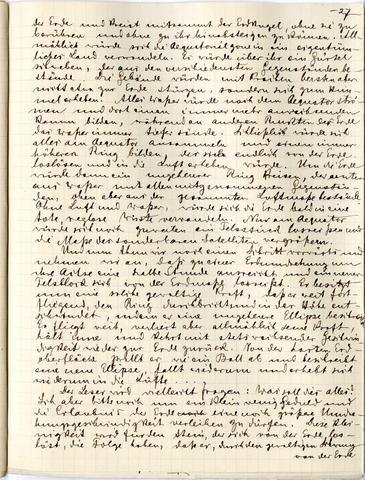 - 27
der Erde und kreist mitsammt der Erdkugel, ohne sie zu
berühren und ohne zu ihr hinabsteigen zu können. All
mählich würde sich die Aequatorialzone in ein eigentüm-
liches Land verwandeln. Es würde über ihr ein Gürtel
schweben, der aus den verschiedensten Gegenständen be
stände. Die Gebäude würden mit
nicht etwa zur Erde stürzen, sondern sich zum Him
mel erheben. Alles Wasser würde nach dem Aequator strö
men und dort einen immer mehr anwachsenden
Kamm bilden, während an anderen Punkten der Erde
das Wasser immer tiefer sänke. Schließlich würde sich
alles am Aequator ansammeln und einen immer
höheren Ring bilden, der sich endlich von der Erde
loslösen und in die Luft erheben würde. Um die Erde
würde dann ein ungeheurer Ring kreisen, der unten
aus Wasser mit allen mitgenommenen Gegenstän-
den, oben aber aus der gesammten Luftmasse bestände.
Ohne Luft und Wasser würde sich die Erde bald in eine
tote, reglose Wüste verwandeln. Nur am Aequator
würde sich noch zuweilen ein Felsstück losreissen und
die Masse des sonderbaren Satelliten vergrößern.
Und nun thun wir noch einen Schritt vorwärts und
nehmen wir an, daß zu einer Erdumdrehung um
ihre Achse eine halbe Stunde ausreicht und ein neuer
Felsblock sich von der Erde losreißt. Er besitzt
nun eine solche gewaltige Kraft, daß er weit fort
fliegend, den Ring durchbricht und in der Höhe ent
schwindet, indem er eine ungeheure Ellipse beschreibt.
Er fliegt weit, verliert aber allmählich seine Kraft,
hält inne und kehrt mit stets wachsender Geschwin
digkeit wieder zur Erde zurück. Von der harten Erd
oberfläche prallt er wie ein Ball ab und beschreibt
eine neue Ellipse, fällt wiederum und erhebt sich
wiederum in die Lüfte . . . .
Der Leser wird vielleicht fragen: Was soll das alles?
Ich aber bitte noch um ein klein wenig Geduld und
die Erlaubnis der Erde eine noch größere Umdre
hungsgeschwindigkeit verleihen zu dürfen. Diese Schnel
ligkeit wird für den Stein, der sich von der Erde los
löst, die Folge haben, daß er, durch den gewaltigen
von der Erde